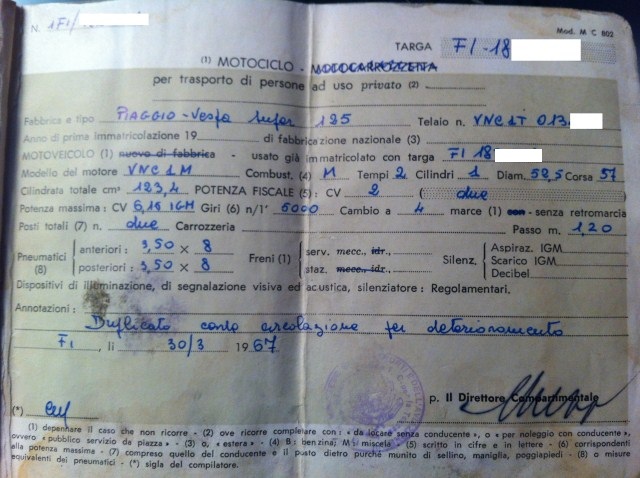 N. 1FI/
Mod. M C 802
TARGA FI-18
(1) MOTOCICLO - MOTOCARROZZETTA
per trasporto di persone ad uso privato (2)
Fabbrica e tipo PIAGGIO-Vespa Super 125 Telaio n. VNC1T 013.
Anno di prima immatricolazione 19 di fabbricazione nazionale (3)
MOTOVEICOLO (1) nuovo di fabbrica - usato già immatricolato con targa FI 18
Modello del motore VNC1M Combust. (4) M Tempi 2 Cilindri 1 Diam. 52,5 Corsa 57
Cilindrata totale cm³ 123,4 POTENZA FISCALE (5): CV 2 ( due )
Potenza massima: CV 6,16 IGM Giri (6) n/1' 5000 Cambio a 4 marce (1) con - senza retromarcia
Posti totali (7) n. due Carrozzeria Passo m. 1,20
Pneumatici (8) anteriori: 3,50 x 8 posteriori: 3,50 x 8 Freni (1) serv. mecc., idr., staz. mecc., idr., Silenz. Aspiraz. IGM Scarico IGM Decibel
Dispositivi di illuminazione, di segnalazione visiva ed acustica, silenziatore: Regolamentari.
Annotazioni:
Duplicato carta circolazione per deterioramento
FI, li 30/3 1967
p. Il Direttore Compartimentale
(*)
(1) depennare il caso che non ricorre - (2) ove ricorre completare con: « da locare senza conducente », o « per noleggio con conducente »,
ovvero « pubblico servizio da piazza » - (3) o, « estera » - (4) B: benzina; M: miscela - (5) scritto in cifre e in lettere - (6) corrispondenti
alla potenza massima - (7) compreso quello del conducente e il posto dietro purché munito di sellino, maniglia, poggiapiedi - (8) o misure
equivalenti dei pneumatici - (*) sigla del compilatore.